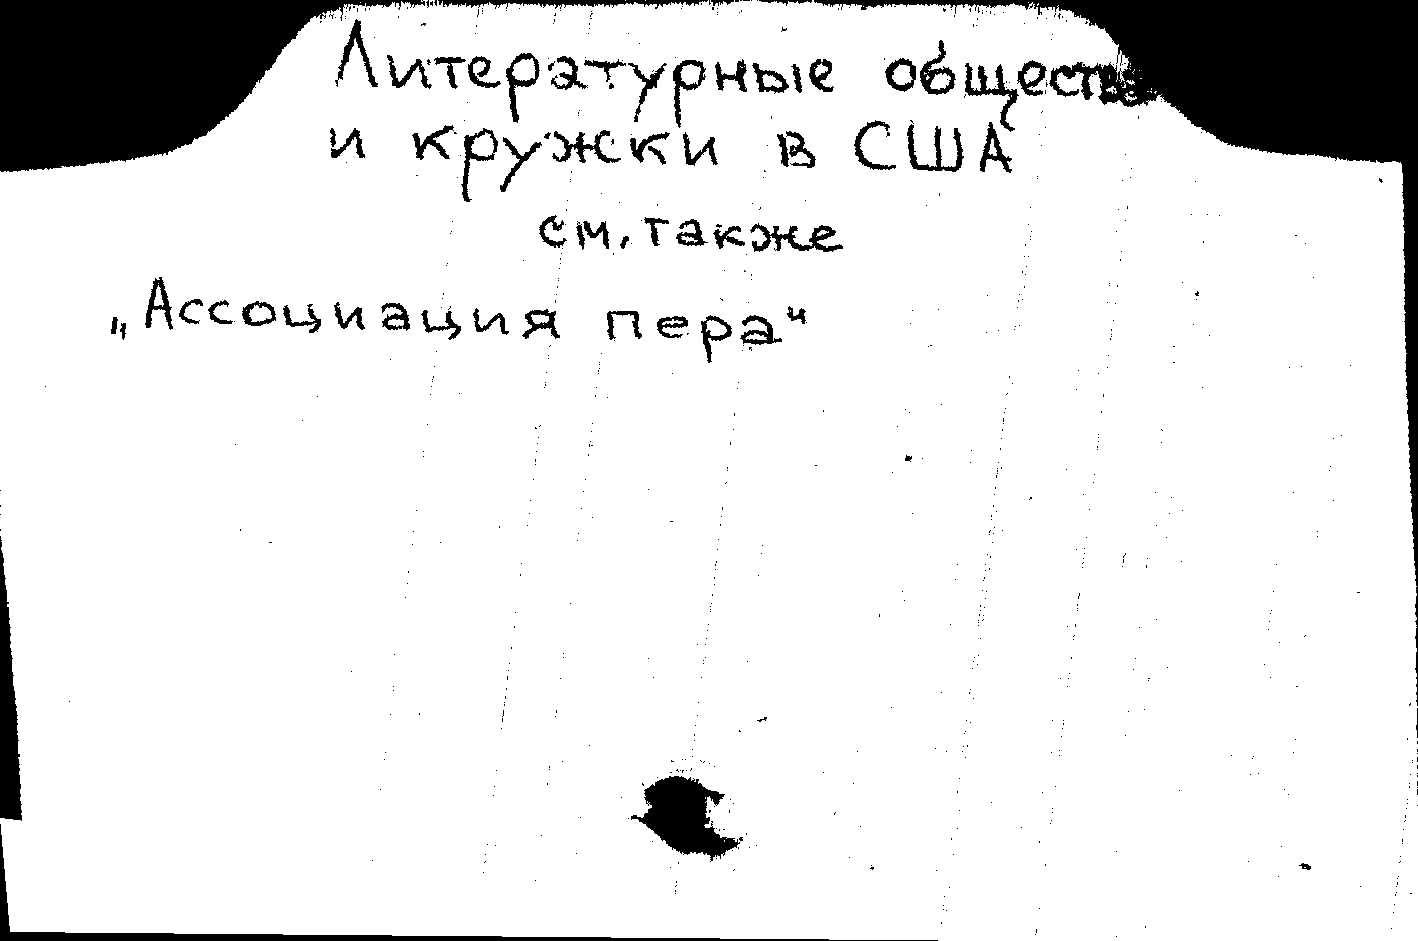 Литературные общества
и кружки в США
см. также
„Ассоциация пера"